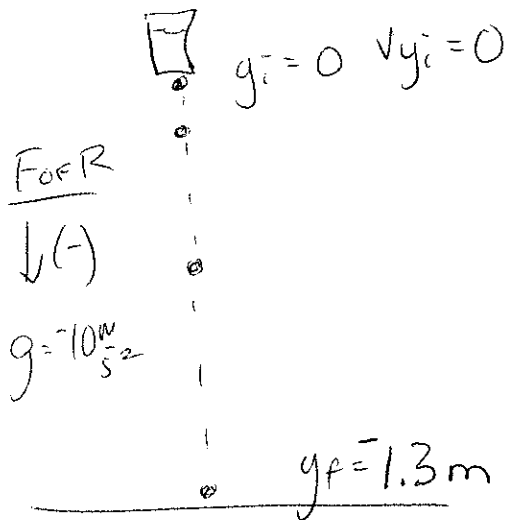 yi = 0 vyi = 0
FOFR
↓(-)
g = -10 m/s²
yf = -1.3 m